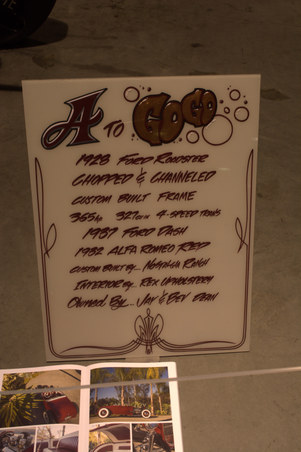 A TO GO GO
1928 FORD ROADSTER
CHOPPED & CHANNELED
CUSTOM BUILT FRAME
365hp 327 4-SPEED TRANS
1937 FORD DASH
1932 ALFA ROMEO RED
CUSTOM BUILT BY...
INTERIOR BY... REX UPHOLSTERY
OWNED BY... JAY & BEV